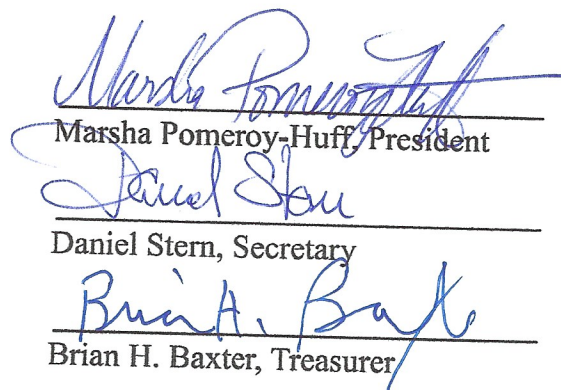 Marsha Pomeroy-Huff
Marsha Pomeroy-Huff, President
Daniel Stern
Daniel Stern, Secretary
Brian H. Baxter
Brian H. Baxter, Treasurer